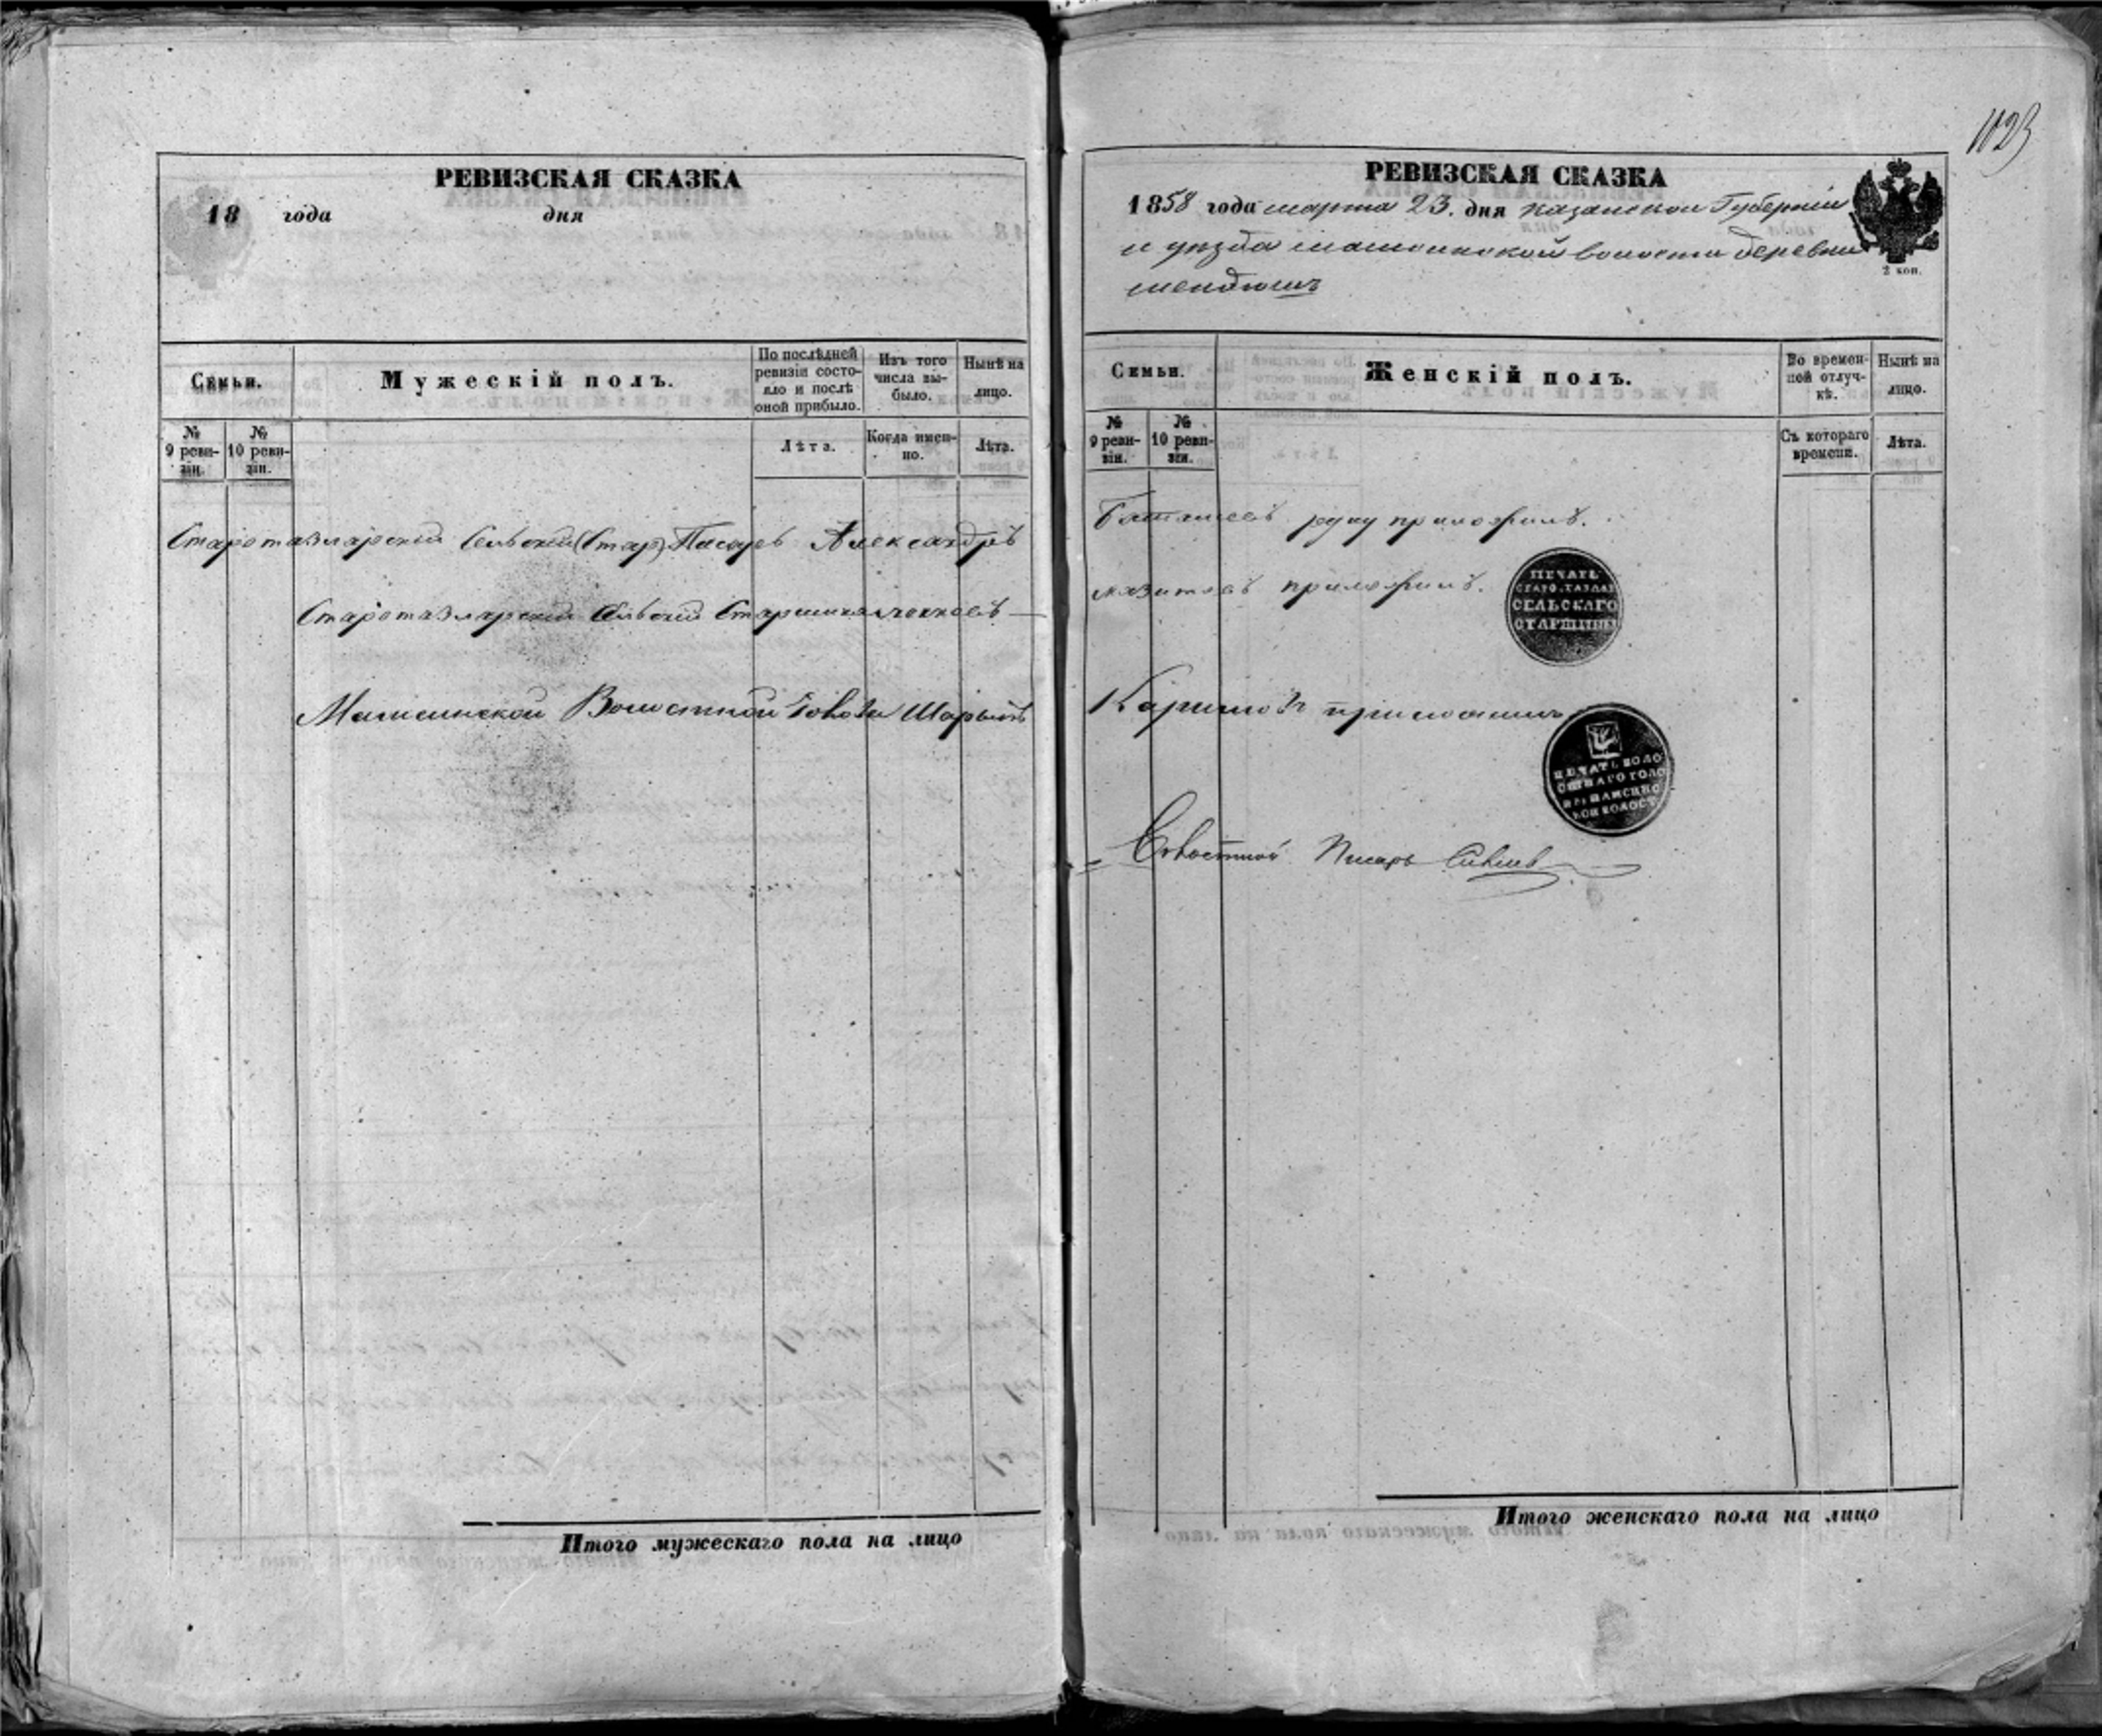 РЕВИЗСКАЯ СКАЗКА
18 года дня
Семьи.
Мужескій полъ.
По послѣдней ревизіи состояло и послѣ оной прибыло.
Изъ того числа выбыло.
Нынѣ на лицо.
№ 9 ревизіи.
№ 10 ревизіи.
Лѣта.
Когда именно.
Лѣта.
Старотазларский Сельский (Стар) Писарь Александръ
Старотазларский Сельский Старшина
Мамсинской Волостной Голова Шарыпъ
Итого мужескаго пола на лицо
1123
РЕВИЗСКАЯ СКАЗКА
1858 года марта 23. дня Казанской Губерніи
и уѣзда Мамсинской волости деревни
Мендюшъ
2 коп.
Семьи.
Женскій полъ.
Во временной отлучкѣ.
Нынѣ на лицо.
№ 9 ревизіи.
№ 10 ревизіи.
Съ котораго времени.
Лѣта.
руку приложилъ.
приложилъ.
ПЕЧАТЬ
СТАРО-ТАЗЛАР
СЕЛЬСКАГО
СТАРШИНЫ
Каримовъ приложилъ
ПЕЧАТЬ ВОЛО
СТНАГО ГОЛО
ВЫ МАМСИНС
КОЙ ВОЛОСТ
Волостной Писарь
Итого женскаго пола на лицо